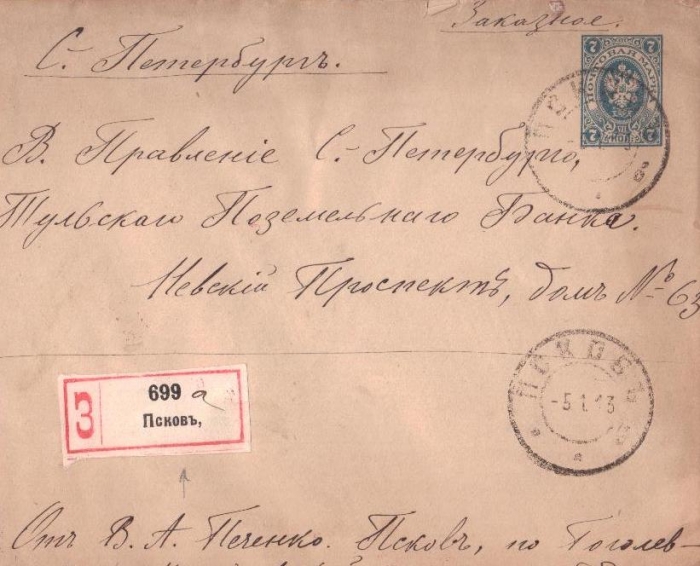 Заказное.
С. Петербургъ.
7 ПОЧТОВАЯ МАРКА 7
7 7
В. Правленіе С. Петербурго,
Тульскаго Поземельнаго Банка.
Невскій Проспектъ, домъ № 63
ПСКОВЪ
-5.1.13
З
699 а
Псковъ,
Отъ В. А. Печенко. Псковъ, по Гоголев-